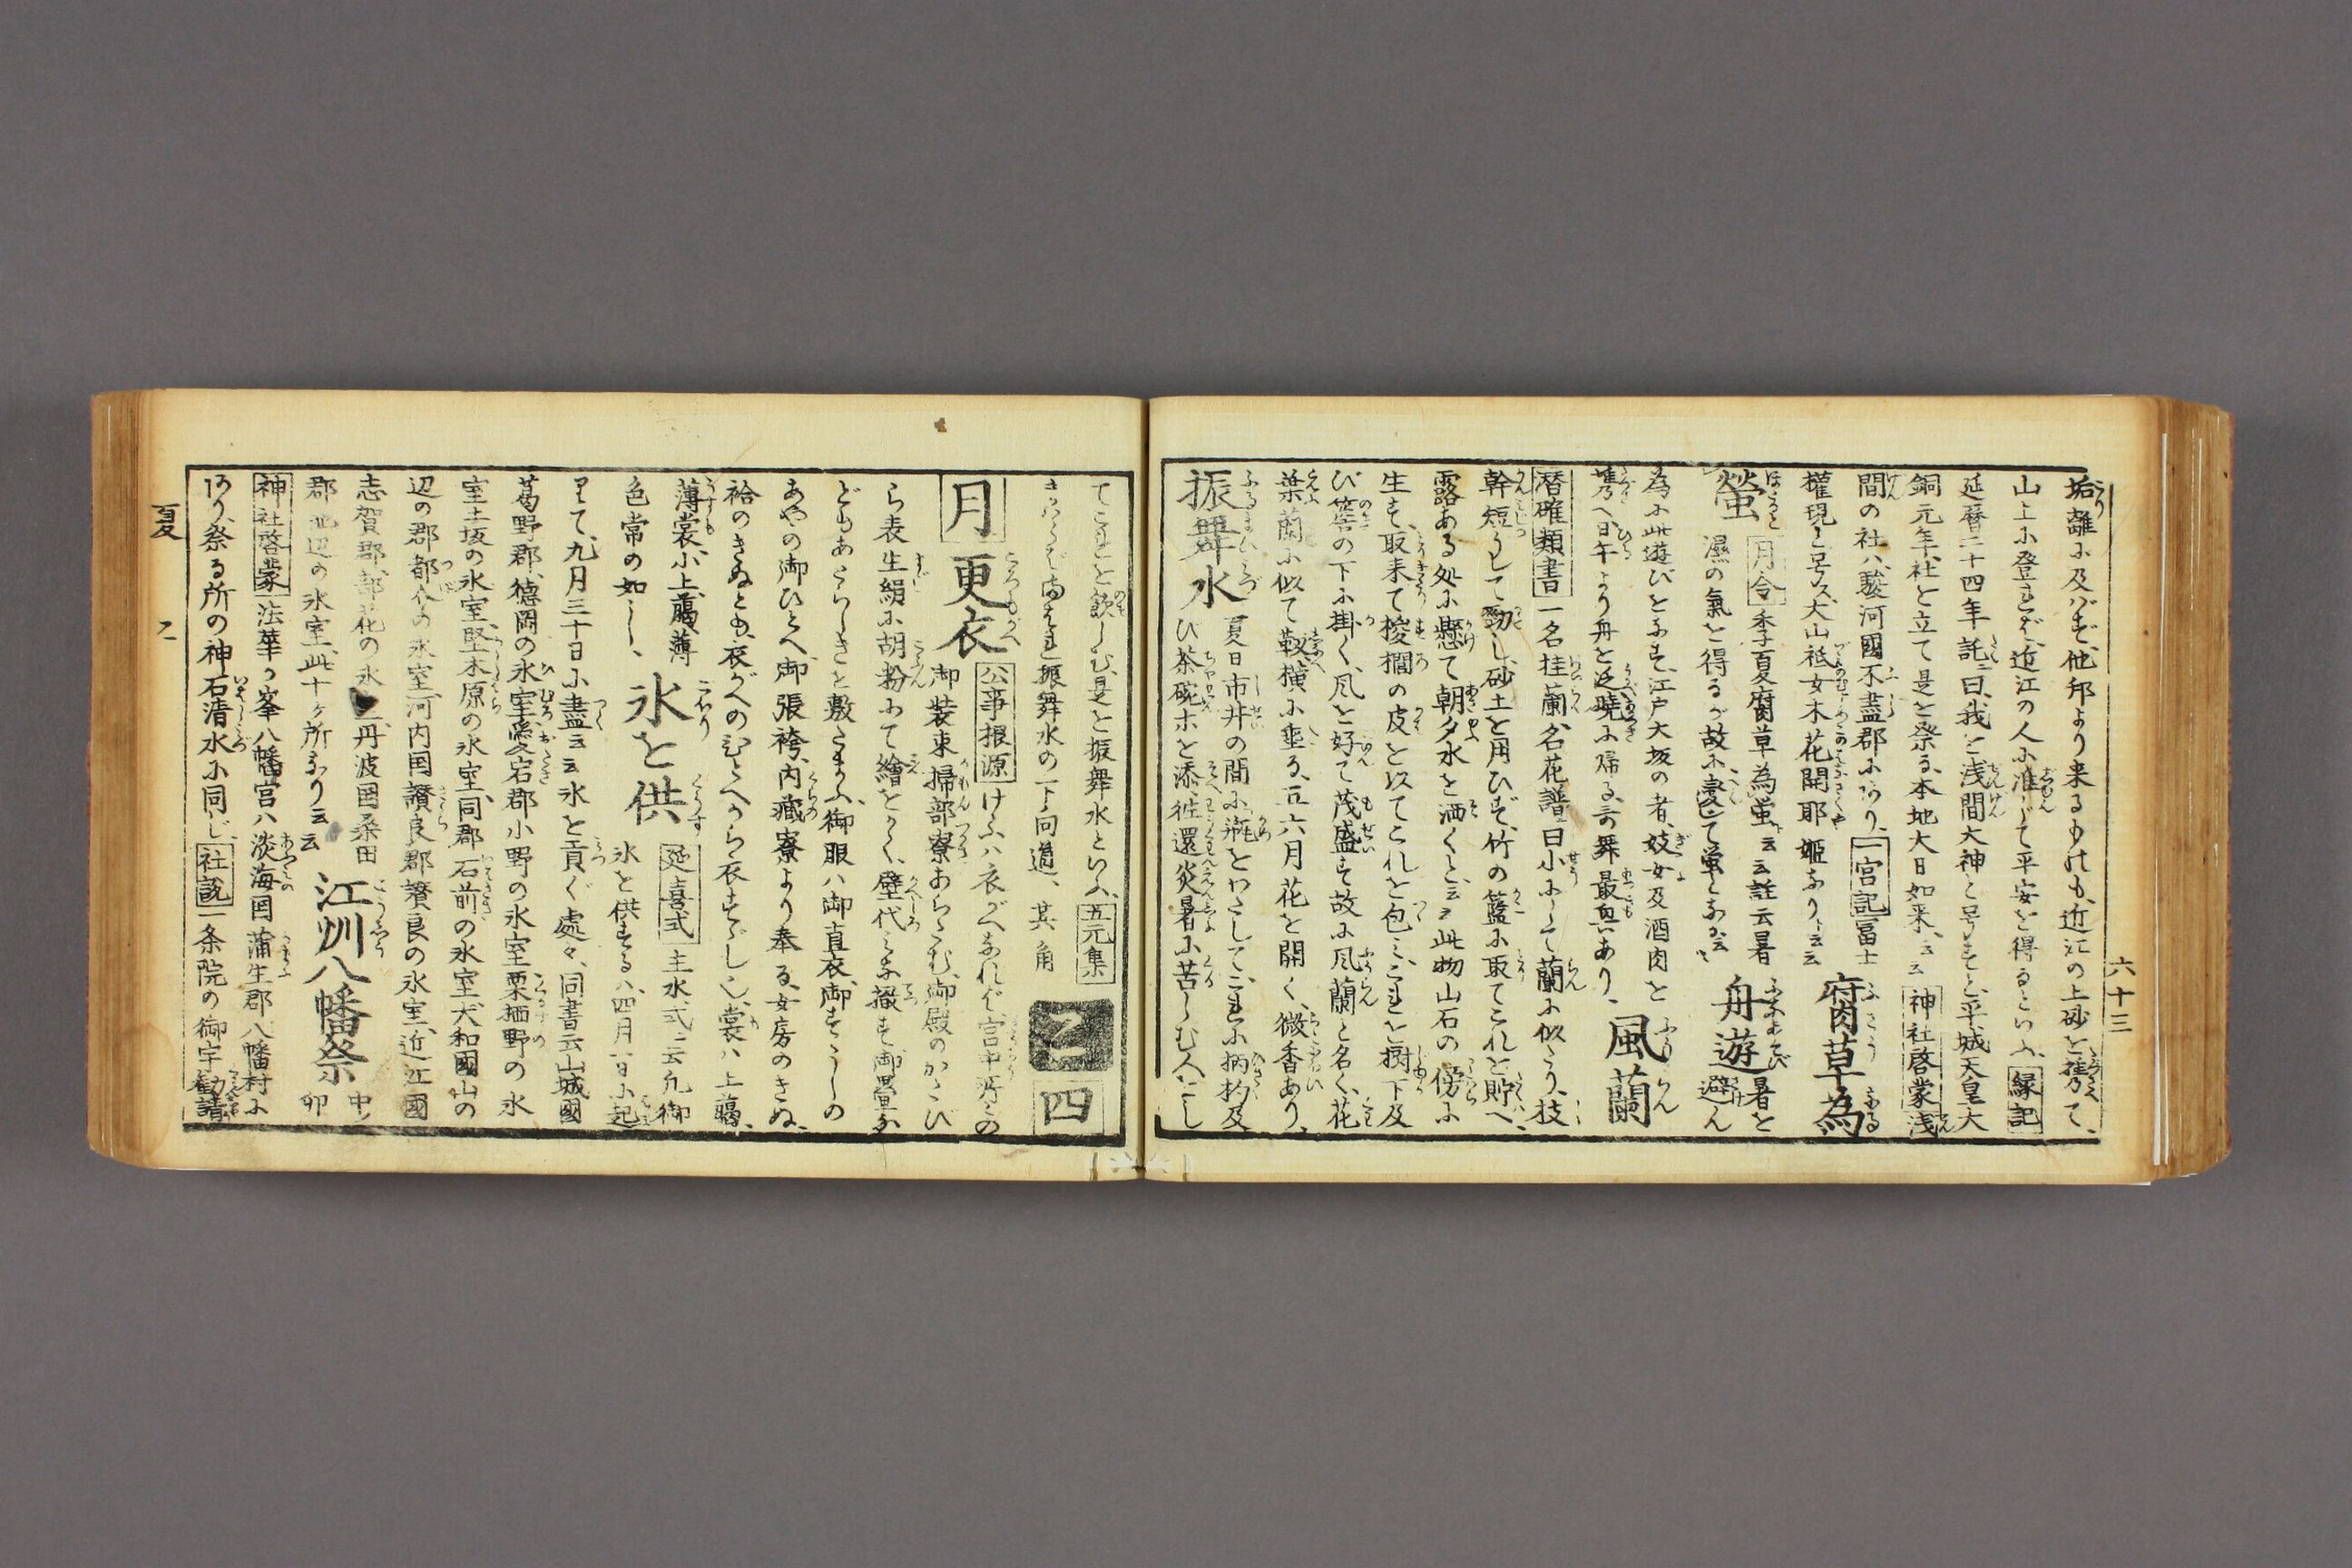 六十三
垢離に及バず他邦より来るものも、近江の上砂を携て、
山上に登れば、近江の人に准じて平安を得るといふ、縁記
延暦二十四年託曰、我を浅間大神と号すと、平城天皇大
銅元年、社を立て是を祭る、本地大日如来、云云 神社啓蒙 浅
間の社ハ、駿河國不盡郡にあり、一宮記 冨士
權現と号ス、大山祇女木花開耶姫なり、云云
腐草為
螢
月令 季夏腐草為蛍、云云註云暑
濕の氣を得るが故に変じて蛍となる云、
舟遊
暑を
避ん
為に此遊びをなす、江戸大坂の者、妓女及酒肉を
携へ、日午より舟を泛、暁に帰る、言舞最興あり、
風蘭
潜確類書 一名桂蘭、名花譜曰小にして蘭に似たり、枝
幹短うして勁し、砂土を用ひず、竹の籃に取てこれを貯へ、
露ある処に懸て朝夕水を洒くと、云云此物山石の傍に
生ず、取来て椶櫚の皮を以てこれを包ミ、これを樹下及
び簷の下に掛く、風を好て茂盛す故に風蘭と名く、花
葉蘭に似て、靫横に垂る、五六月花を開く、微香あり、
振舞水
夏日市井の間に、瓶をわさして、これに柄杓及
び茶碗ホを添、徃還炎暑に苦しむ人にし
てこれを飲しむ、是を振舞水といふ、五元集
満れ振舞水の下向道、其角
四
月
更衣
公事根源 けふハ衣がへなれば、宮中所々の
御装束、掃部寮あらたむ、御殿のかたび
ら表生絹に胡粉にて繪をかく、壁代ミな撤す、御畳な
どもあたらしきを敷たまふ、御服ハ御直衣、御すゝしの
あやの御ひとへ、御張袴、内藏寮より奉る、女房のきぬ、
袷のきぬとも、衣がへのひとへから衣すゞし也、裳ハ上﨟
薄裳、小上﨟薄
色常の如し、
氷を供
延喜式 主水式云凡御
氷を供する、ハ四月一日に起
りて、九月三十日に盡云云氷を貢ぐ處々、同書云山城國
葛野郡、徳岡の氷室、愛宕郡小野の氷室栗栖野の氷
室土坂の氷室、堅木原の氷室、同郡石前の氷室、大和國山の
辺の郡都介の氷室、河内国讃良郡讃良の氷室、近江國
志賀郡、部花の氷室、丹波国桑田
郡 池辺の氷室、此十ヶ所なり云云
江州八幡祭
中ノ
卯
神社啓蒙 法華ヶ峯八幡宮ハ淡海国蒲生郡八幡村に
あり、祭る所の神、石清水に同じ、社説 一条院の御宇勧請
夏